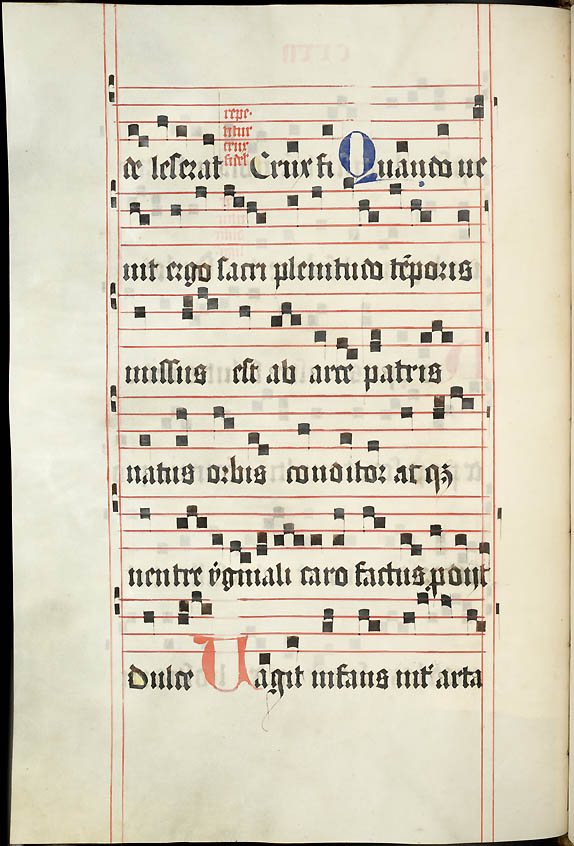 repe-
titur
crux
fidel
de leserat Crux fi Quando ue
nit ergo sacri plenitudo tēporis
missus est ab arce patris
natus orbis conditor at qꝫ
uentre v̄ginali caro factus
dulce Uagit infans int̄ arta